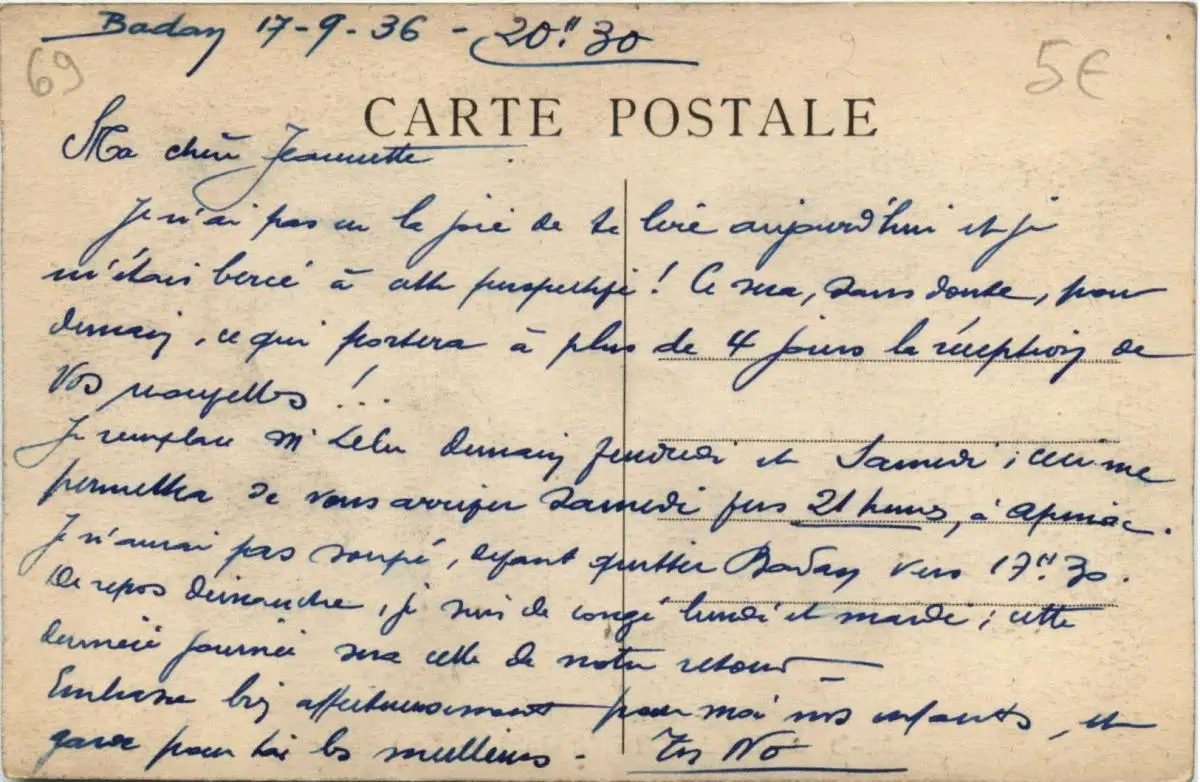 Badan 17-9-36 - 20H30
69
5€
CARTE POSTALE
Ma chère Jeannette
Je n'ai pas eu la joie de te lire aujourd'hui et je
m'étais bercé à cette perspective ! Ce sera, sans doute, pour
demain, ce qui portera à plus de 4 jours la réception de
vos nouvelles !!
Je remplace Mr demain vendredi et Samedi ; ceci me
permettra de vous arriver Samedi vers 21 heures, à Apinac.
Je n'aurai pas soupé, devant quitter Badan vers 17H30.
De repos dimanche, je suis de congé lundi et mardi ; cette
dernière journée sera celle de notre retour -
Embrasse bien affectueusement pour moi nos enfants, et
garde pour toi les meilleurs - Ton Nô